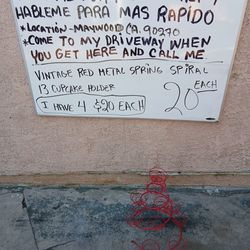 HABLEME PARA MAS RAPIDO
*LOCATION-MAYWOOD CA. 90270
*COME TO MY DRIVEWAY WHEN
YOU GET HERE AND CALL ME
VINTAGE RED METAL SPRING SPIRAL
13 CUPCAKE HOLDER
20 EACH
I HAVE 4 $20 EACH